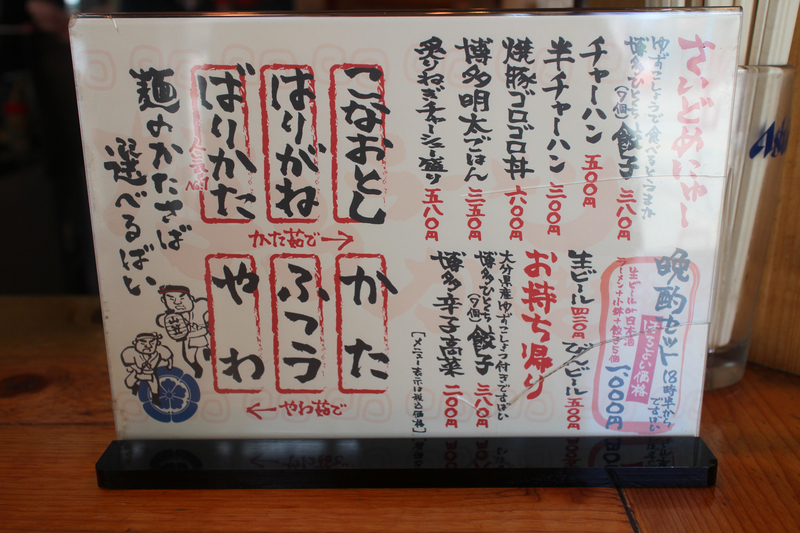 さいどめにゅー
ゆずこしょうで食べるとうみゃか
博多ひとくち餃子 三八〇円
(九個)
チャーハン 五〇〇円
半チャーハン 三〇〇円
焼豚ゴロゴロ丼 六〇〇円
博多明太ごはん 三五〇円
炙りねぎチャーシュー盛り 五八〇円
晩酌セット
(18時半から
ですばい)
生ビールor日本酒
ラーメン+小鉢+餃子5個
ほろよい価格
1,000円
生ビール 四五〇円
ビンビール 五〇〇円
お持ち帰り
大分県産ゆずこしょう付きですばい
博多ひとくち餃子 三八〇円
(九個)
博多辛子高菜 二〇〇円
[メニュー表示は税込価格]
こなおとし
はりがね
ばりかた
人気No.1
かた麺で→
かた
ふつう
やわ
←やわ麺で
麺のかたさば
選べるばい